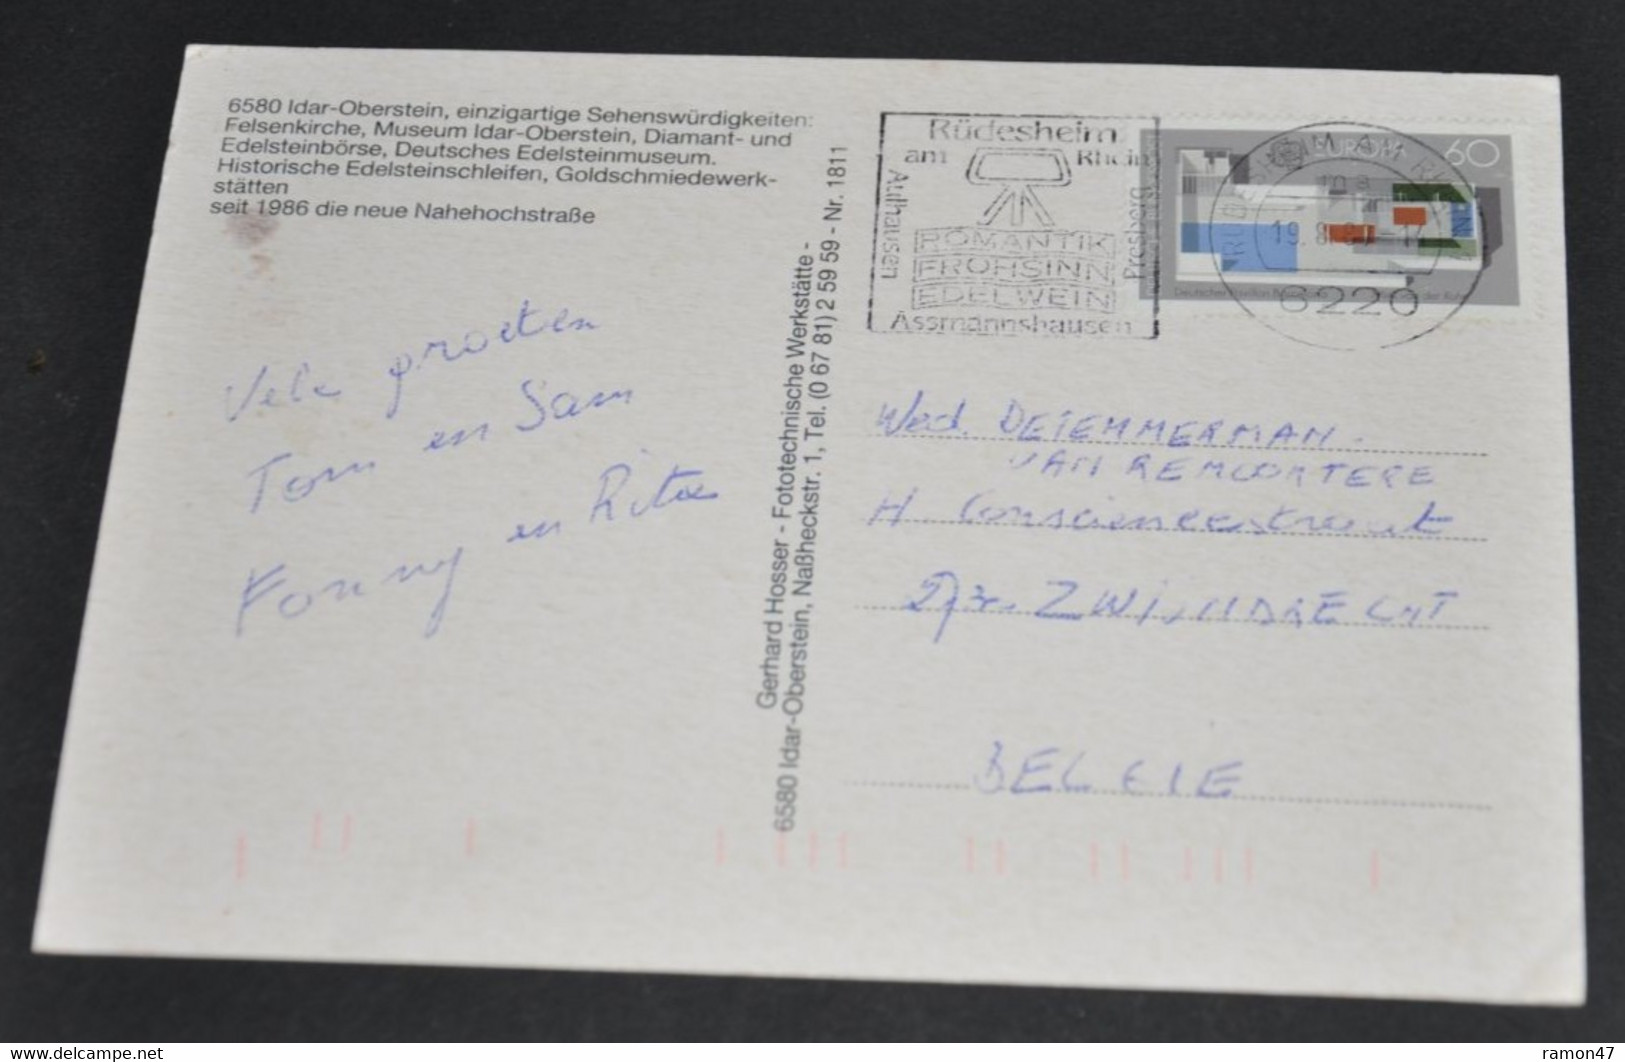 6580 Idar-Oberstein, einzigartige Sehenswürdigkeiten:
Felsenkirche, Museum Idar-Oberstein, Diamant- und
Edelsteinbörse, Deutsches Edelsteinmuseum.
Historische Edelsteinschleifen, Goldschmiedewerk-
stätten
seit 1986 die neue Nahehochstraße
Vele groeten
Tom en Sam
Fonny en Rita
Gerhard Hosser - Fototechnische Werkstätte -
6580 Idar-Oberstein, Naßheckstr. 1, Tel. (0 67 81) 2 59 59 - Nr. 1811
Rüdesheim
am Rhein
Aulhausen
Presberg
ROMANTIK
FROHSINN
EDELWEIN
Assmannshausen
EUROPA 60
RÜDESHEIM AM
19. 8.
6220
Wed. DETEMMERMAN.
VAN REMOORTERE
H Consciencestraat
ZWIJNDRECHT
BELGIE
www.delcampe.net
ramon47